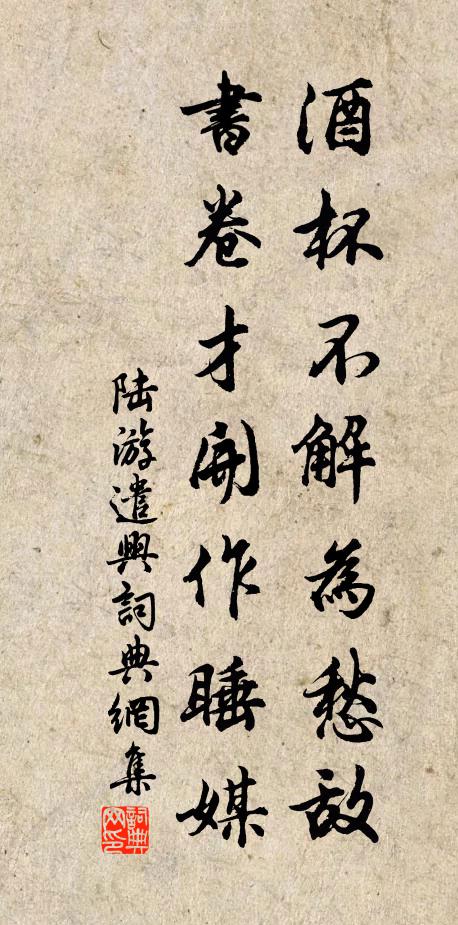 酒杯不解為愁敵
書卷才開作睡媒
陸游遣興詞典網集
詞典
网印